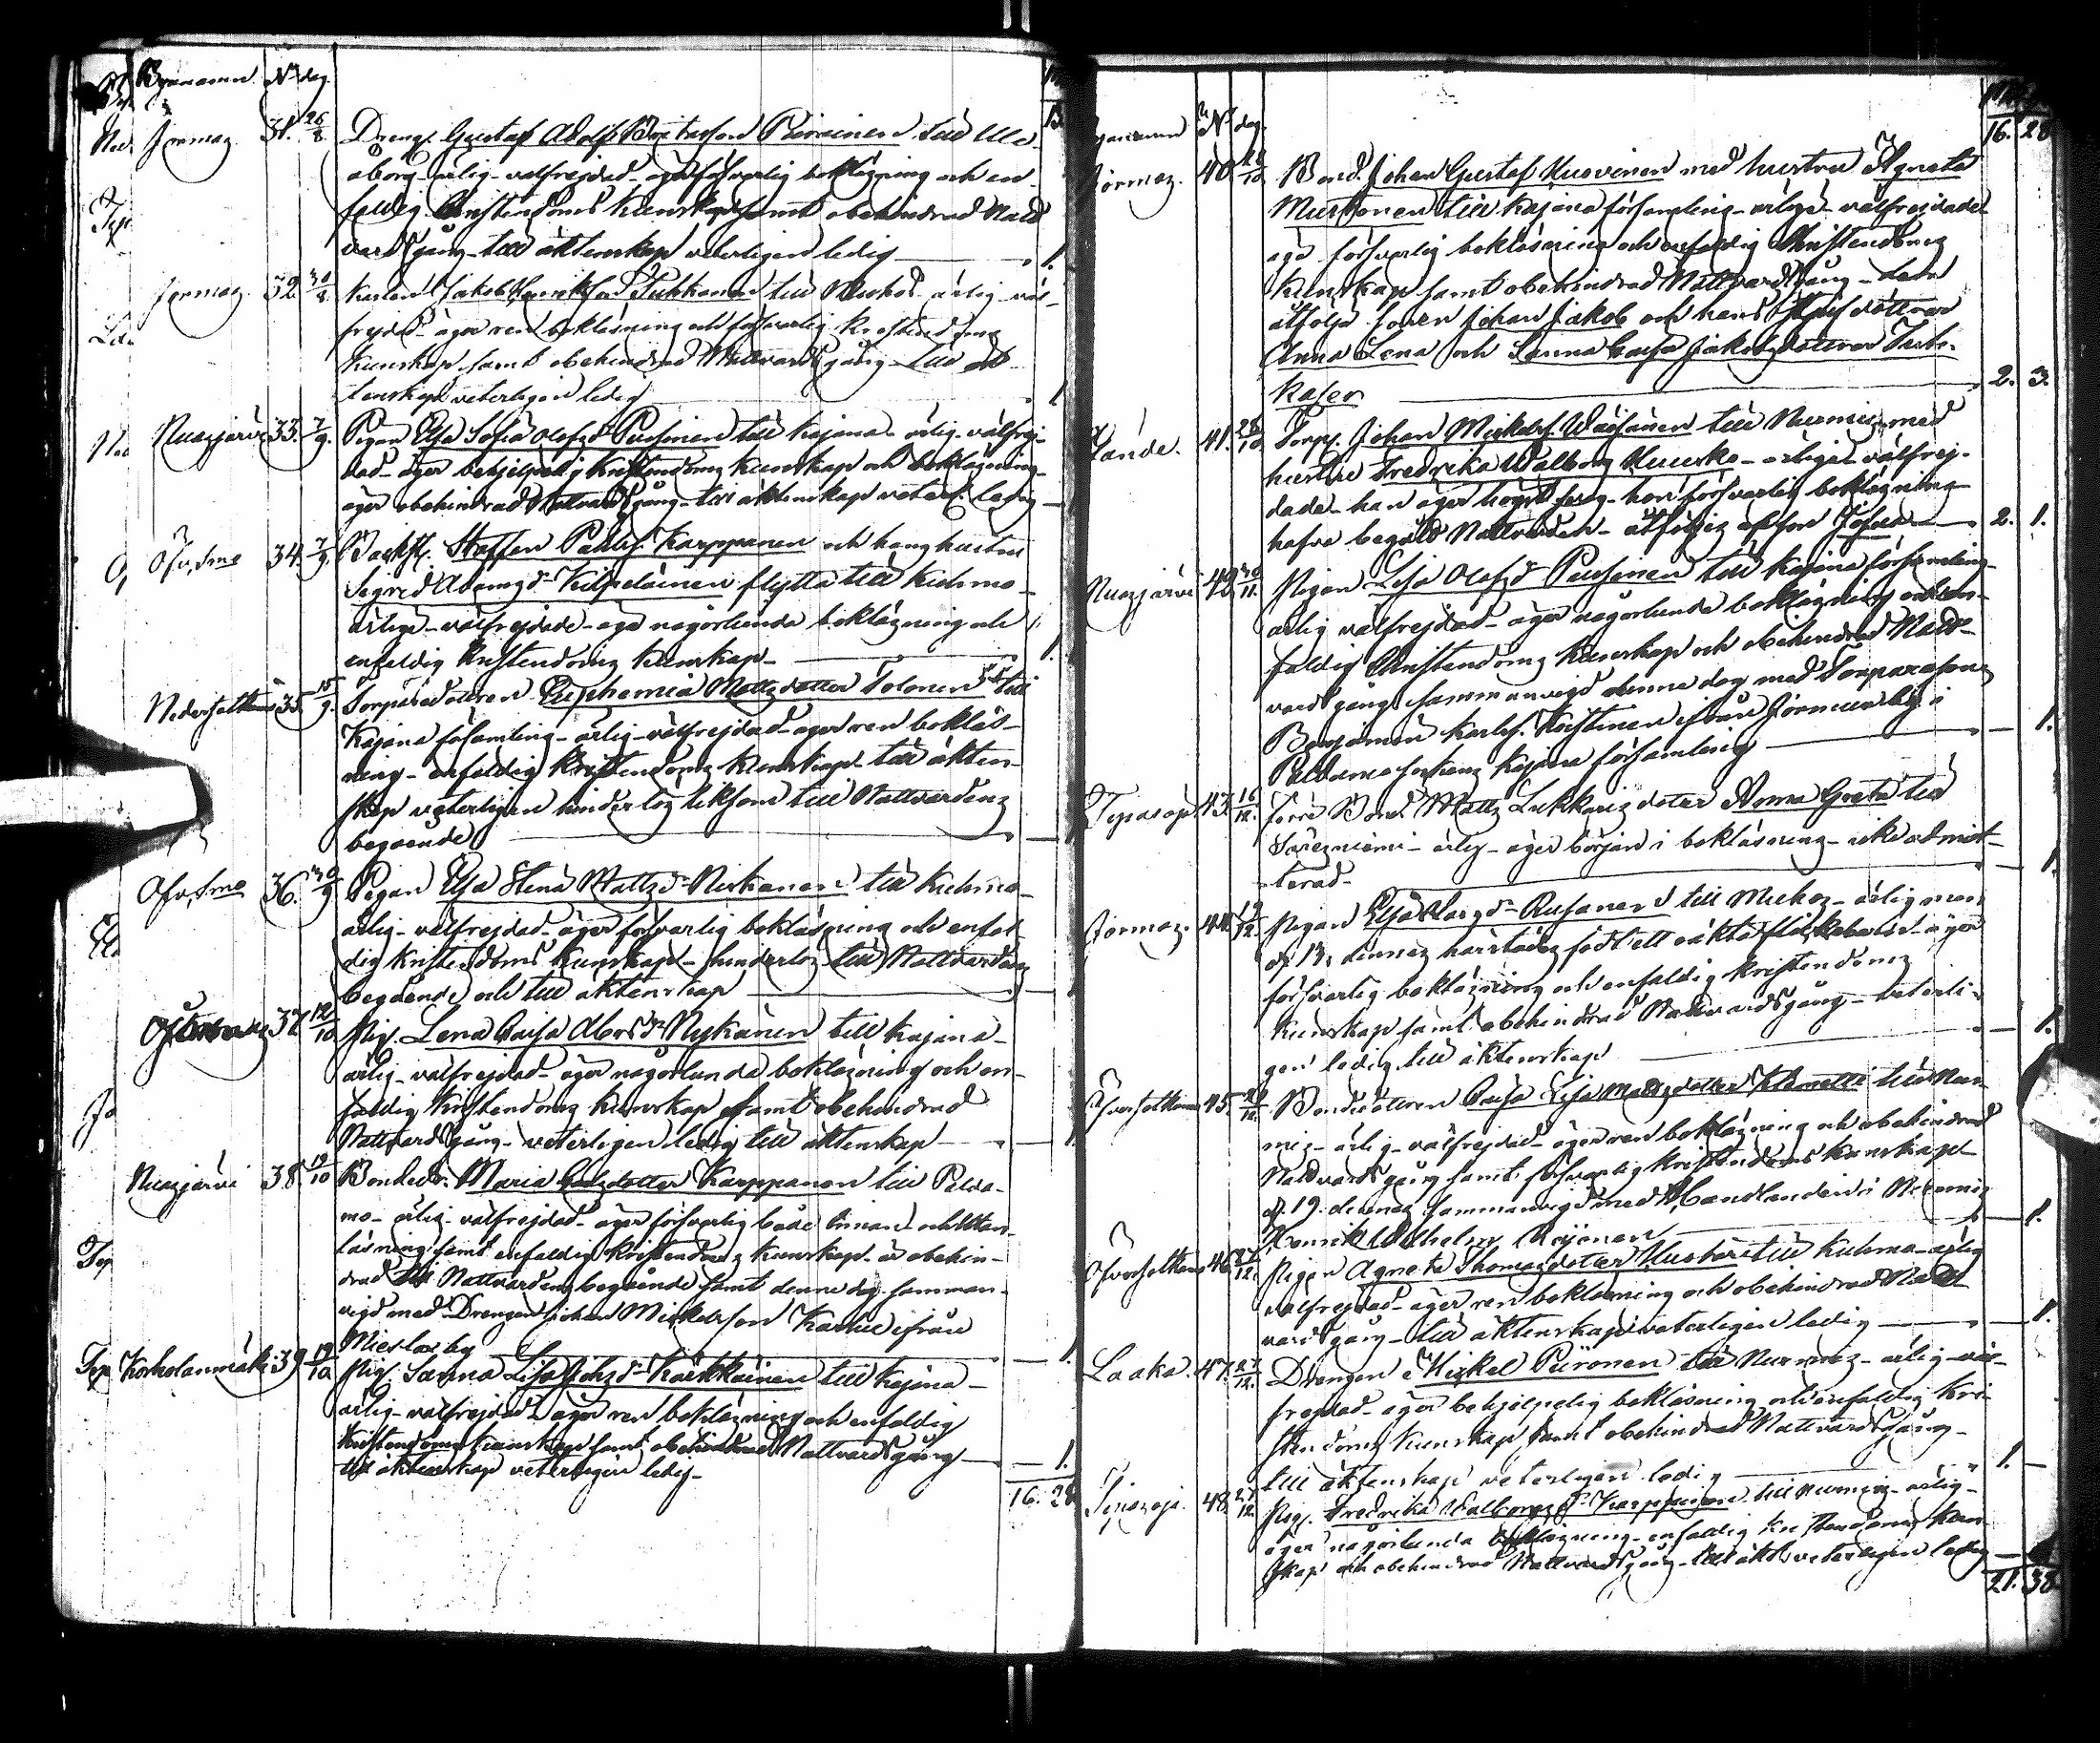 Bynamn. No dag.
Jormaz. 31. 26/8 Dreng. Gustaf Adolf Piirainen till Uleå-
borg ärlig välfrejdad äger försvarlig bokläsning och en-
faldig Christendoms kunskap samt obehindrad Natt
vardsgång till äktenskap veterligen ledig 1.
Jormaz 32. 30/8 Karlen Jakob Henriksson till ärlig väl-
frejdad äger ren boksläsning och försvarlig kristendoms
kunskap samt obehindrad Nattvardsgång till äk-
tenskap veterligen ledig 1
Nuasjärvi 33. 7/9. Pigan Elsa Sofia Olofsdr Pussinen till Kajana ärlig välfrej-
dad äger behjelpelig kristendoms kunskap och boksläsning
äger obehindrad Nattvardsgång till äktenskap veterl. ledig
34. 7/9. Backst. Staffan Pahlss. Karppanen och hans hustru
Sigrid Adamsdr Kilpeläinen flytta till Kuhmo
ärliga välfrejdade äga någorlunda boksläsning och 1.
enfaldig kristendoms kunskap 1.
35. 15/9. Torparedottren Euphemia Mattsdotter Tolonen till
Kajana församling ärlig välfrejdad äger ren boksläs-
ning enfaldig kristendoms kunskap till äkten-
skap veterligen hinderlös liksom till Nattvardens
begående
36. 30/9 Pigan Elsa Stina Mattsdr Niskanen till Kuhmo
ärlig välfrejdad äger försvarlig boksläsning och enfal
dig kristendoms kunskap hinderlös till Nattvardens
begående och till äktenskap
37. 12/10 Pig. Lena Caisa Abrsdr Nyskänen till Kajana
ärlig välfrejdad äger någorlunda boksläsning och en-
faldig kristendoms kunskap samt obehindrad
Nattvardsgång veterligen ledig till äktenskap 1.
Nuasjärvi 38. 19/10 Bonded. Maria Karppanen till Palda-
mo ärlig välfrejdad äger försvarlig både innan och utan
läsning samt enfaldig kristendoms kunskap är obehin-
drad till Nattvardens begående samt denne dag samman-
vigd med Drengen Johan Mickelsson ifrån
Mieslax by 1.
Korholanmäki 39. 19/10 Pig. Sanna Lisa Johsdr Kärkkäinen till Kajana
ärlig välfrejdad äger ren boksläsning och enfaldig
kristendoms kunskap samt obehindrad Nattvardsgång
till äktenskap veterligen ledig 1.
16. 28
16. 28
Jormaz. 40. /10 Bond. Johan Gustaf Kuvinen med hustru Agneta
till Kajana församling ärliga välfrejdade
äga försvarlig boksläsning och enfaldig Christendoms
kunskap samt obehindrad Nattvardsgång dem
åtfölja sonen Johan Jakob och hans döttrar
Anna Lena och Sanna Caisa Jakobsdöttrar
2. 3.
41. 28/10 Torp. Johan Mickelss. Väisänen till Nurmis med
hustru Fredrika Walborg ärliga välfrej-
dade han äger hon försvarlig boksläsning
hafva begått Nattvarden åtföljes af son 2. 1.
Nuasjärvi 42. 30/11. Pigan Lisa Olofsdr Pussinen till Kajana församling
ärlig välfrejdad äger någorlunda boksläsning och en-
faldig Christendoms kunskap och obehindrad Natt-
vardsgång sammanvigd denne dag med Torparesonen
Benjamin Karlss. ifrån Jormua by i
Paldamo Kajana församling 1.
43. 16/12. Förre Bond. Matts Lukkaris doter Anna Greta till
Säresniemi ärlig äger början i boksläsning icke admit-
terad 1.
Jormaz. 44. 19/12. Pigan Elsa Larsdr till ärlig men
d. 13. dennes födt ett oäkta flickebarn äger
försvarlig boksläsning och enfaldig kristendoms
kunskap samt obehindrad Nattvardsgång veterli-
gen ledig till äktenskap 1.
45. /12. Bondedottren Caisa Lisa Mattsdotter Klemetti till Nur-
mis ärlig välfrejdad äger ren boksläsning och obehindrad
Nattvardsgång samt försvarlig kristendoms kunskap
d. 19. dennes sammanvigd med i Nurmis
Henrik Wilhelm 1.
46. /12. Pigan Agneta Thomasdotter till Kuhmo ärlig
välfrejdad äger ren boksläsning och obehindrad Natt
vardsgång till äktenskap veterligen ledig 1.
Laaka. 47. 27/12. Drengen Mickel Piironen till Nurmes ärlig väl-
frejdad äger behjelpelig boksläsning och enfaldig kri-
stendoms kunskap samt obehindrad Nattvardsgång
till äktenskap veterligen ledig 1.
48. 27/12. Pig. Fredrika Karppinen till Nurmis ärlig
äger någorlunda boksläsning enfaldig kristendoms kun-
skap och obehindrad Nattvardsgång till äkt. veterligen ledig
21. 38.